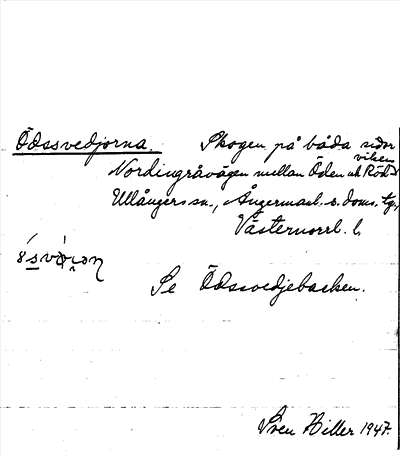 Ödssvedjorna. Skogen på båda sidor
Nordingråvägen mellan Öden och Röd
Ullångers sn., Ångermanl. s. doms. tg.,
Västernorrl. l.
Se Ödssvedjebacken.
Sven Hiller 1947.